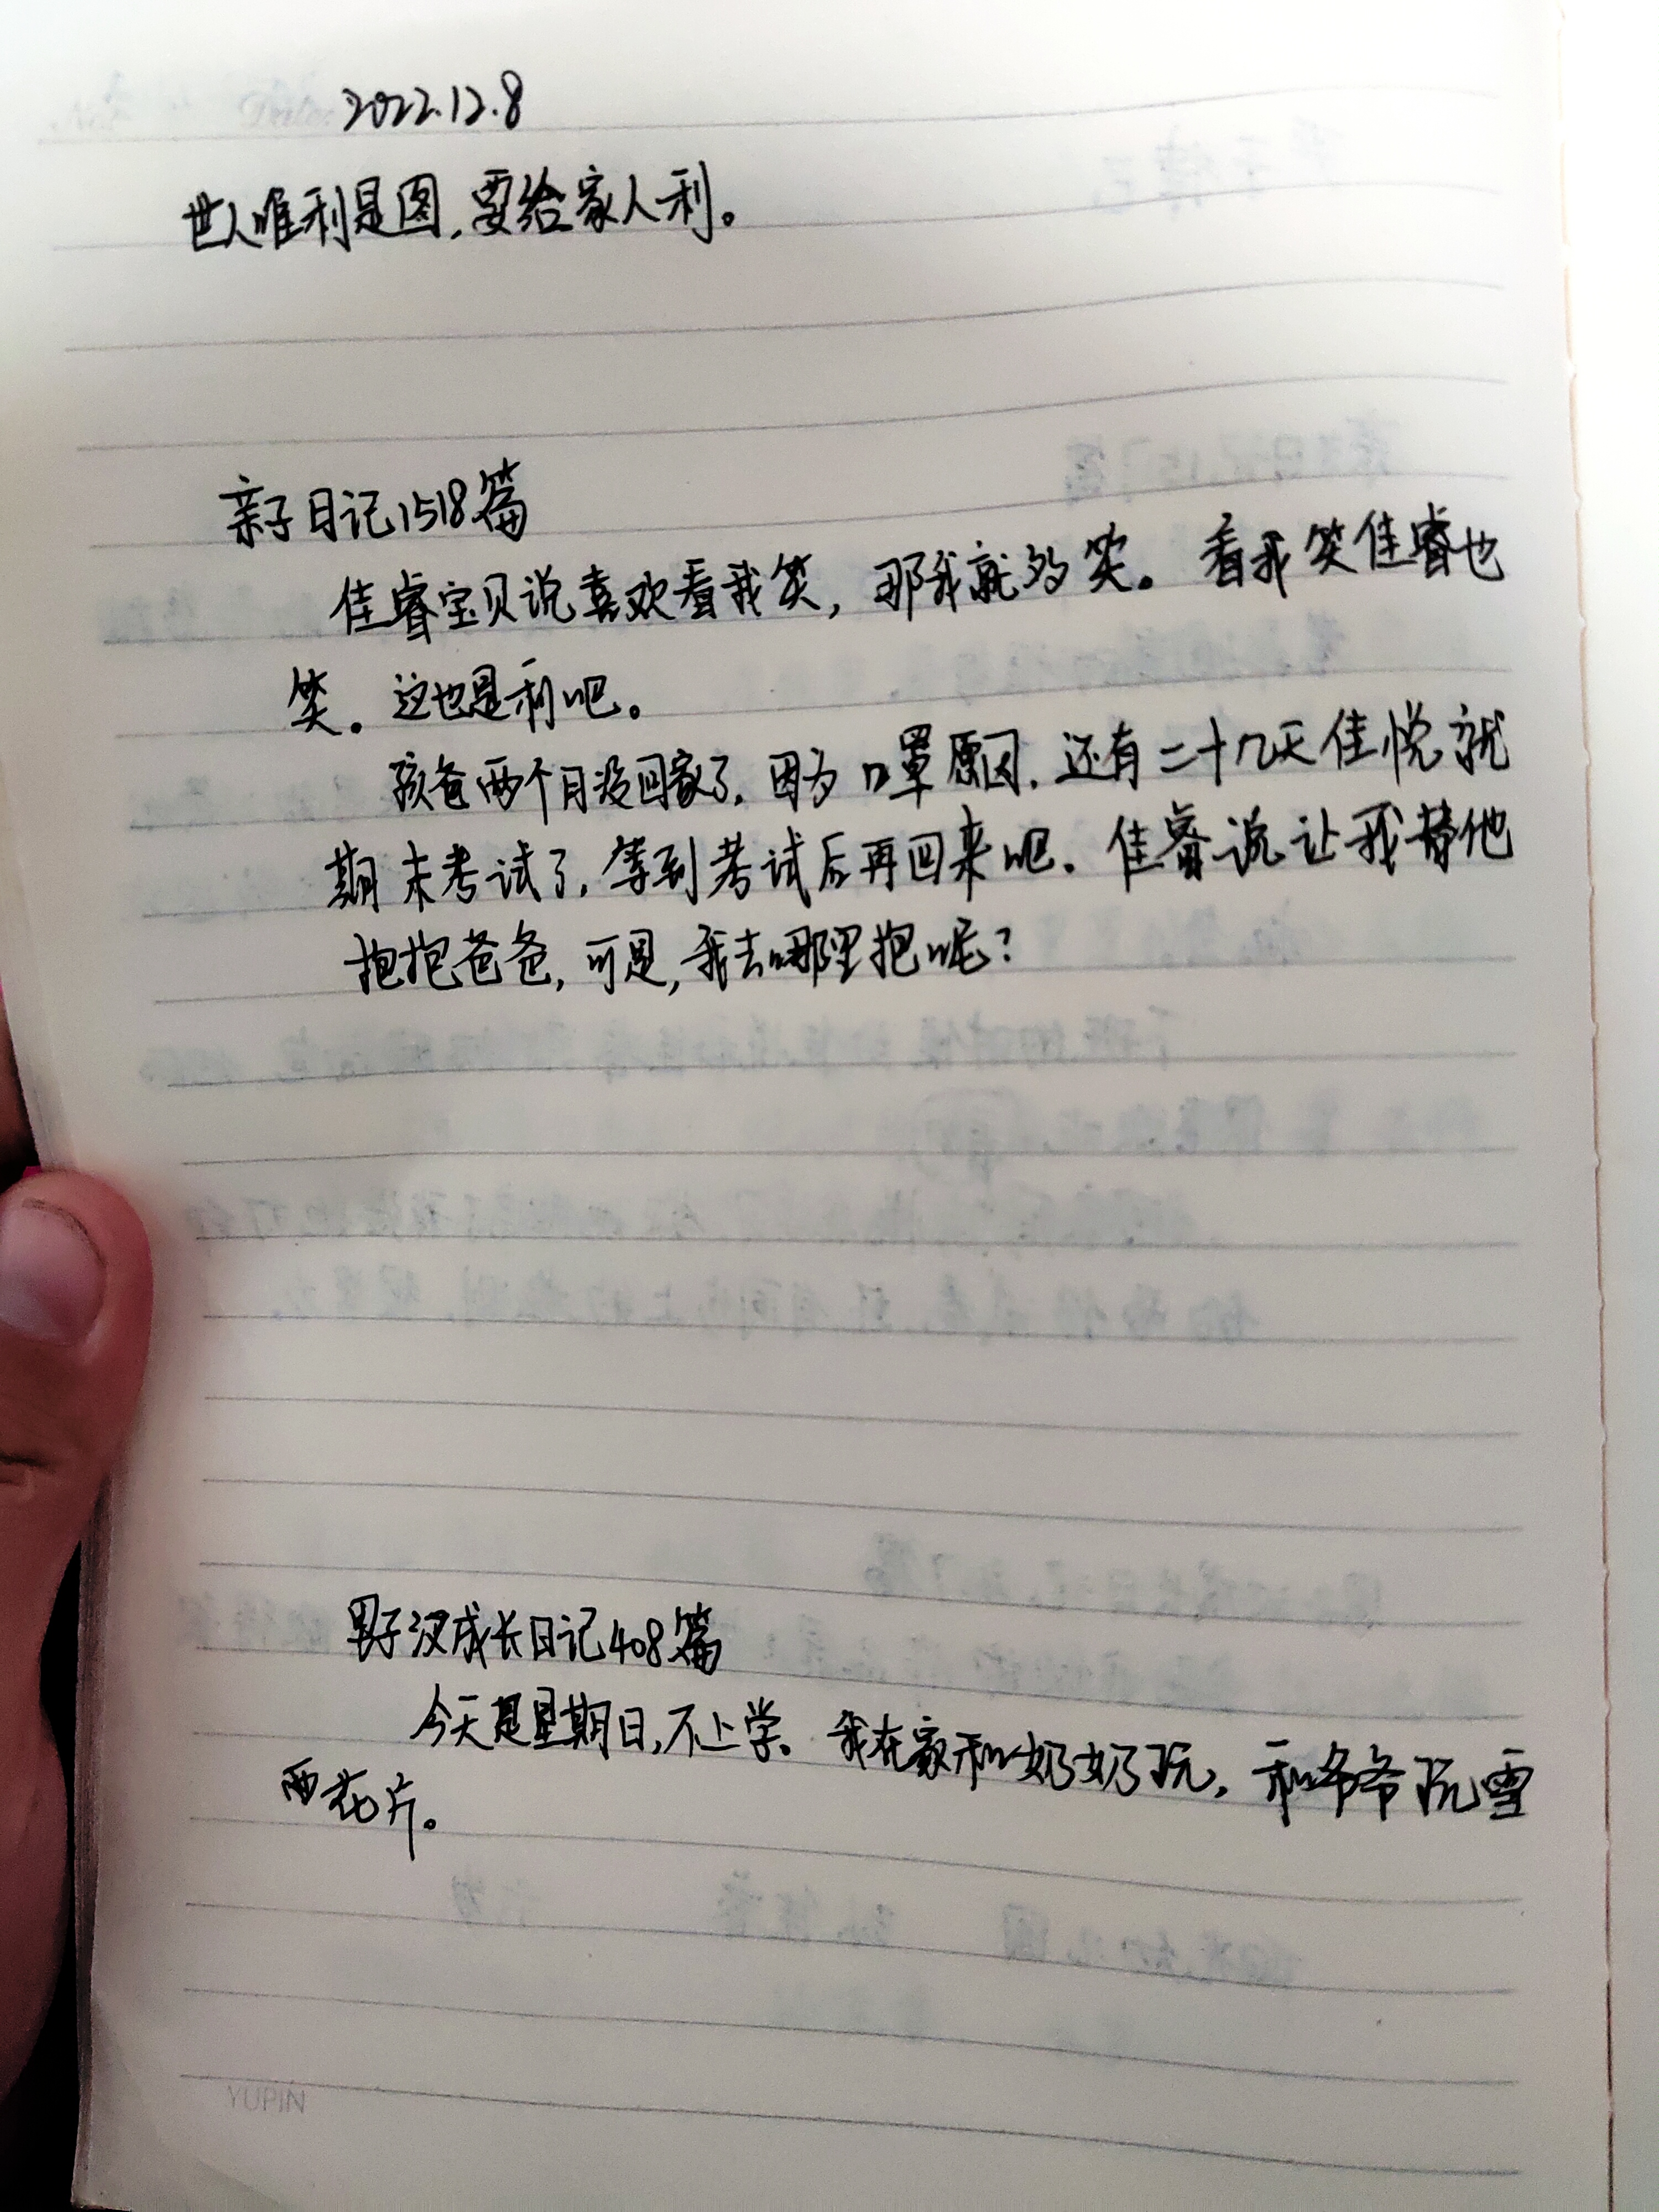 2022.12.8
世人唯利是图,要给家人利。
亲子日记1518篇
佳睿宝贝说喜欢看我笑,那我就多笑。看我笑佳睿也
笑。这也是利吧。
孩爸两个月没回家了,因为口罩原因,还有二十几天佳悦就
期末考试了,等到考试后再回来吧。佳睿说让我替他
抱抱爸爸,可是,我去哪里抱呢?
男子汉成长日记408篇
今天是星期日,不上学。我在家和奶奶玩,和爷爷玩雪
花片。
YUPIN